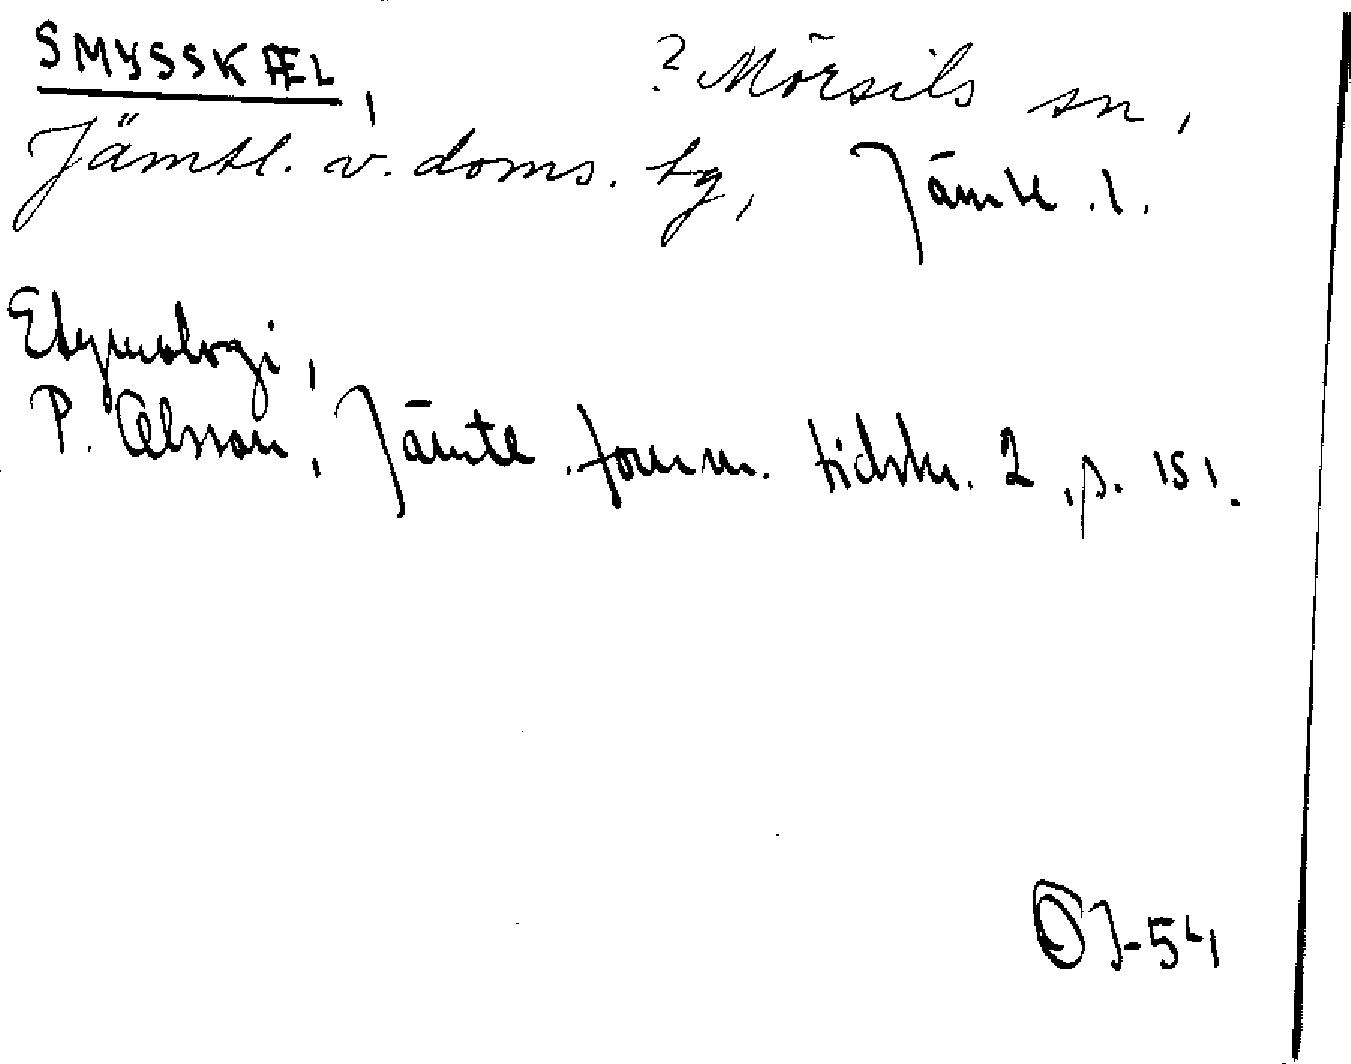 SMYSSKÆL, ? Mörsils sn,
Jämtl. v. doms. tg, Jämtl. l.
Etymologi,
P. Olsson, Jämtl. fornm. tidskr. 2, s. 151.
J-54